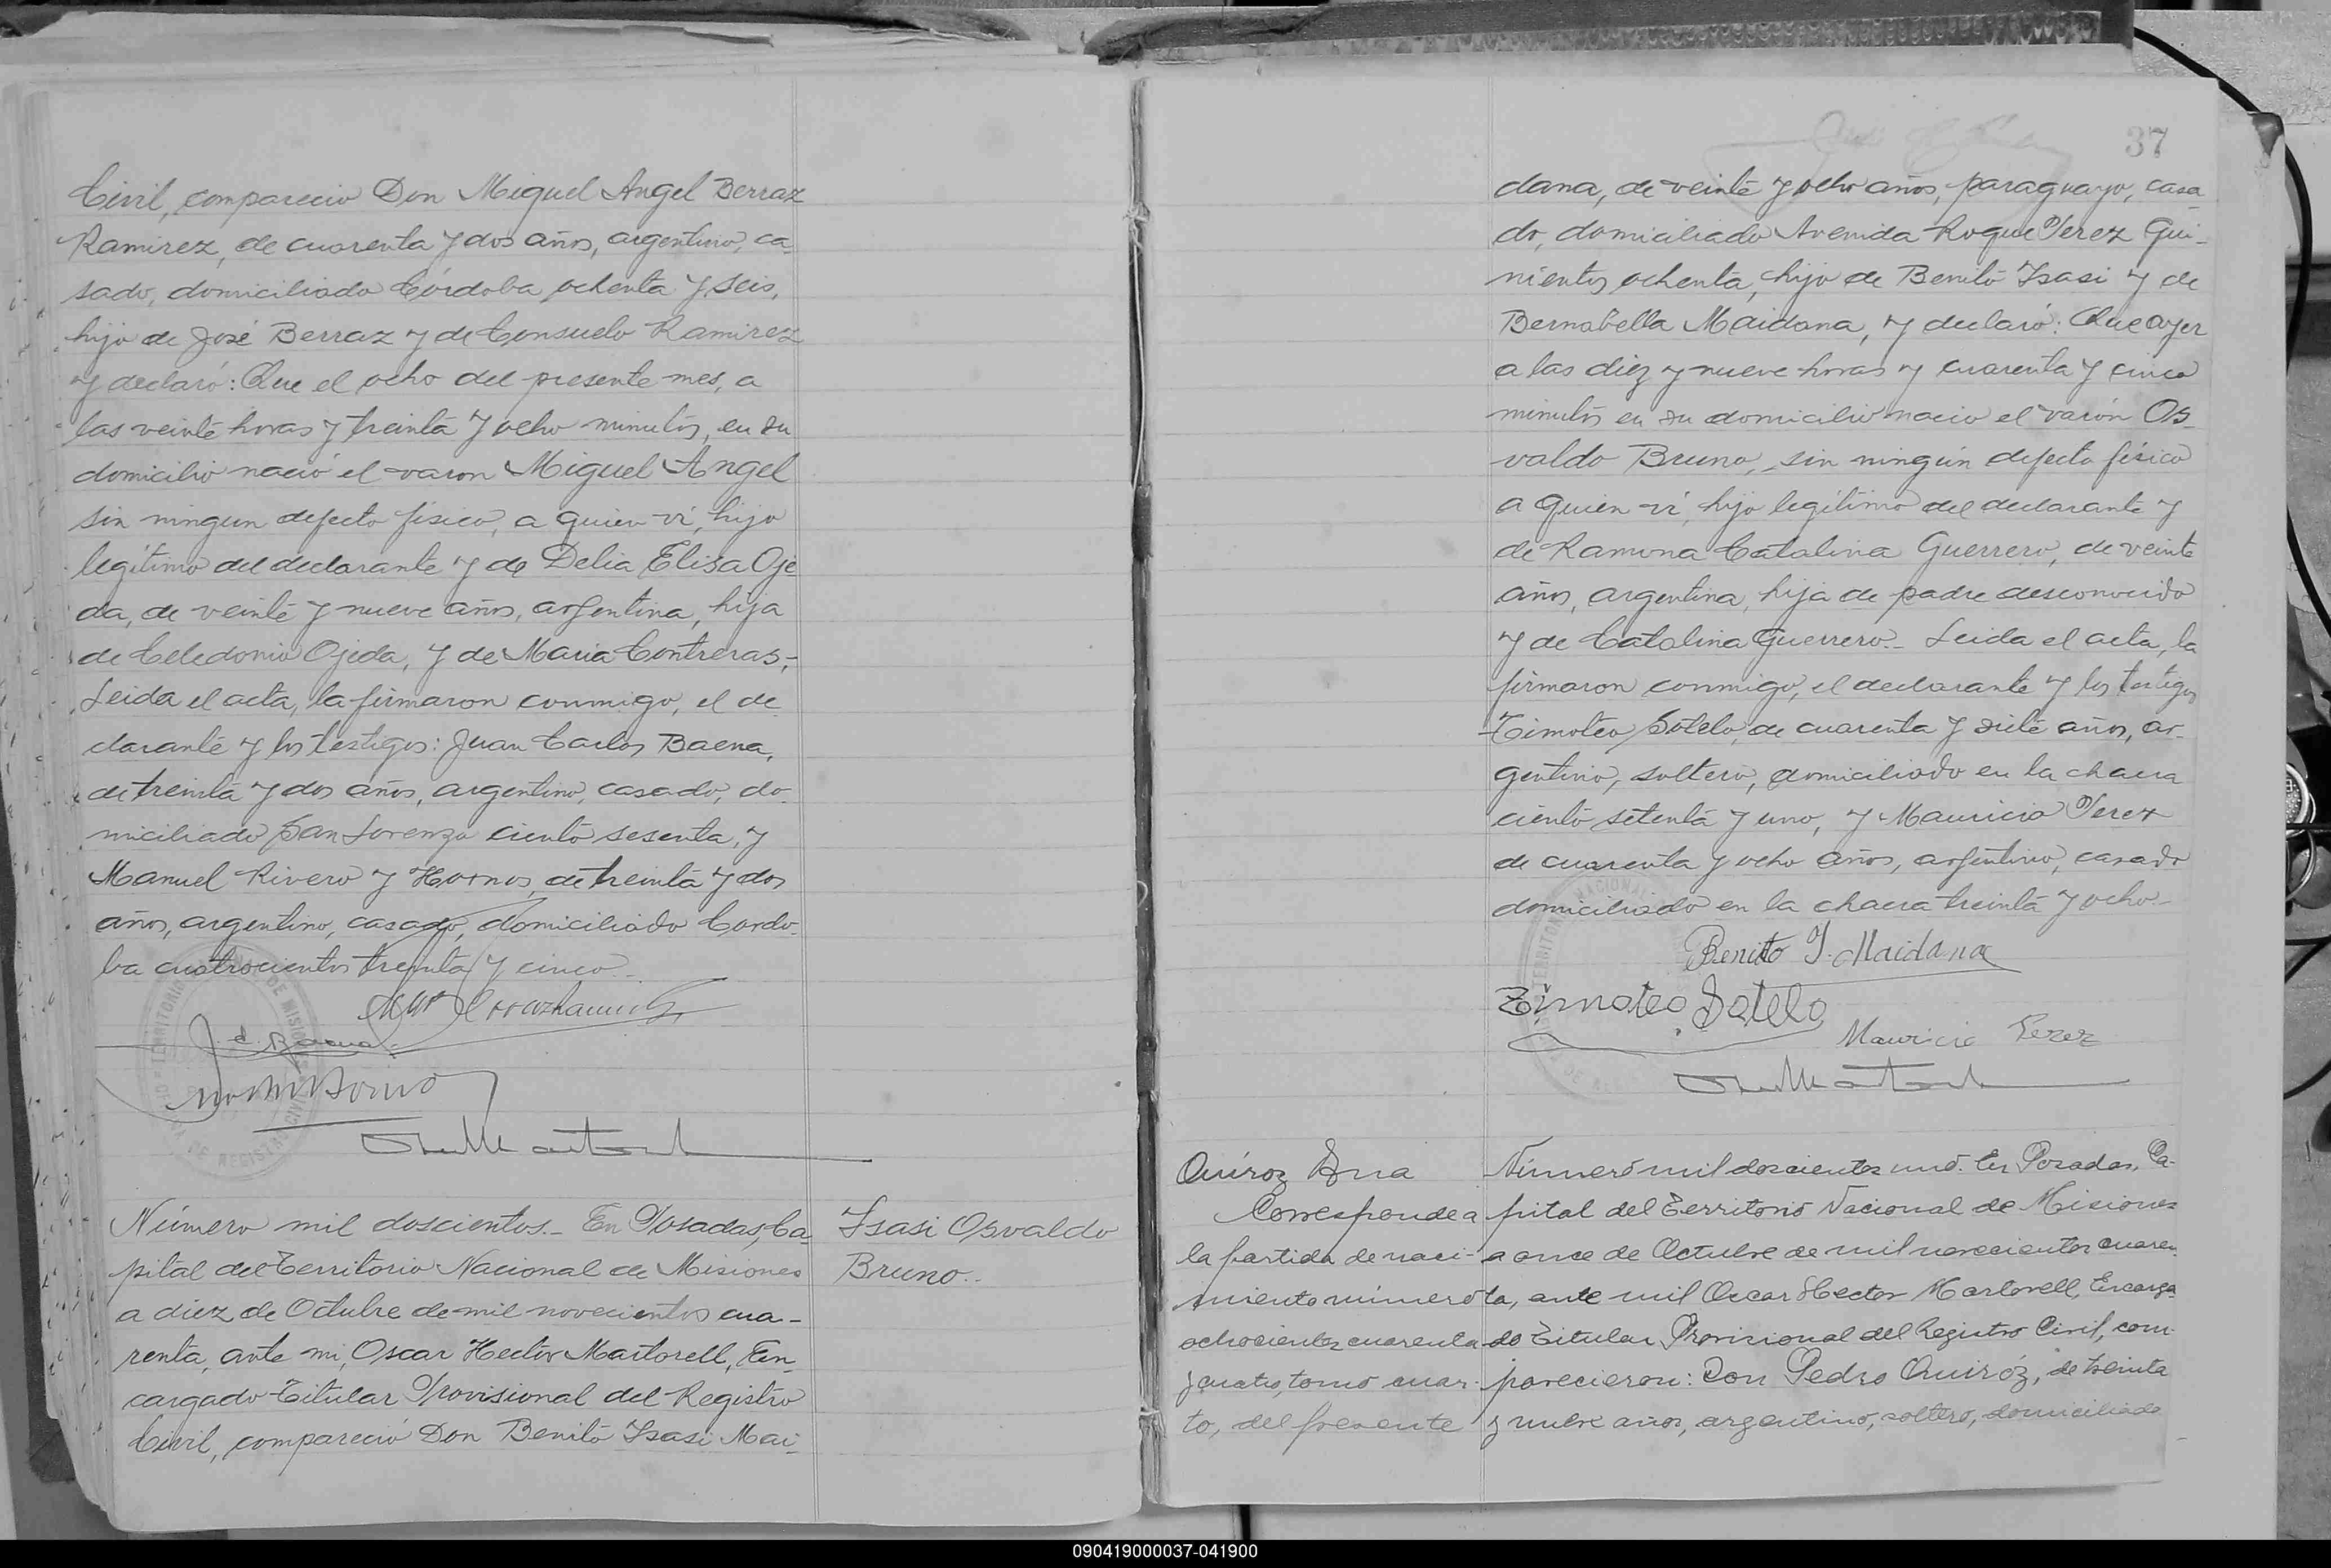 Civil, compareció Don Miguel Angel Berraz
Ramirez, de cuarenta y dos años, argentino, ca-
sado, domiciliado Córdoba ochenta y seis,
hijo de José Berraz y de Consuelo Ramirez
y declaró: Que el ocho del presente mes, a
las veinte horas y treinta y ocho minutos, en su
domicilio nació el varon Miguel Angel
sin ningun defecto fisico, a quien ví, hijo
legítimo del declarante y de Delia Elisa Oje
da, de veinte y nueve años, argentina, hija
de Celedonio Ojeda, y de Maria Contreras.-
Leida el acta, la firmaron conmigo, el de
clarante y los testigos: Juan Carlos Baena,
de treinta y dos años, argentino, casado, do-
miciliado San Lorenzo ciento sesenta, y
Manuel Rivero y Hornos, de treinta y dos
años, argentino, casado, domiciliado Cordo-
ba cuatrocientos treinta y cinco.-
J. C. Baena
Número mil doscientos.- En Posadas, Ca-
pital del Territorio Nacional de Misiones
a diez de Octubre de mil novecientos cua-
renta, ante mi, Oscar Hector Martorell, En-
cargado Titular Provisional del Registro
Civil, compareció Don Benito Isasi Mai-
Isasi Osvaldo
Bruno.-
37
dana, de veinte y ocho años, paraguayo, casa-
do, domiciliado Avenida Roque Perez Qui-
nientos ochenta, hijo de Benito Isasi y de
Bernabella Maidana, y declaró: Que ayer
a las diez y nueve horas y cuarenta y cinco
minutos en su domicilio nacio el varón Os-
valdo Bruno, sin ningún defecto físico
a quien ví, hijo legítimo del declarante y
de Ramona Catalina Guerrero, de veinte
años, argentina, hija de padre desconocido
y de Catalina Guerrero.- Leida el acta, la
firmaron conmigo, el declarante y los testigos
Timoteo Sotelo, de cuarenta y siete años, ar-
gentino, soltero, domiciliado en la chacra
ciento setenta y uno, y Mauricio Perez
de cuarenta y ocho años, argentino, casado
domiciliado en la chacra treinta y ocho-
Benito I. Maidana
Timoteo Sotelo
Mauricio Perez
Quiroz Ana
Corresponde a
la partida de naci-
miento número
ochocientos cuarenta
y cuatro, tomo cuar-
to, del presente
Número mil doscientos uno. En Posadas, Ca-
pital del Territorio Nacional de Misiones
a once de Octubre de mil novecientos cuaren-
ta, ante mil Oscar Hector Martorell, Encarga-
do Titular Provisional del Registro Civil, com-
parecieron: Don Pedro Quiróz, de treinta
y nueve años, argentino, soltero, domiciliado
090419000037-041900